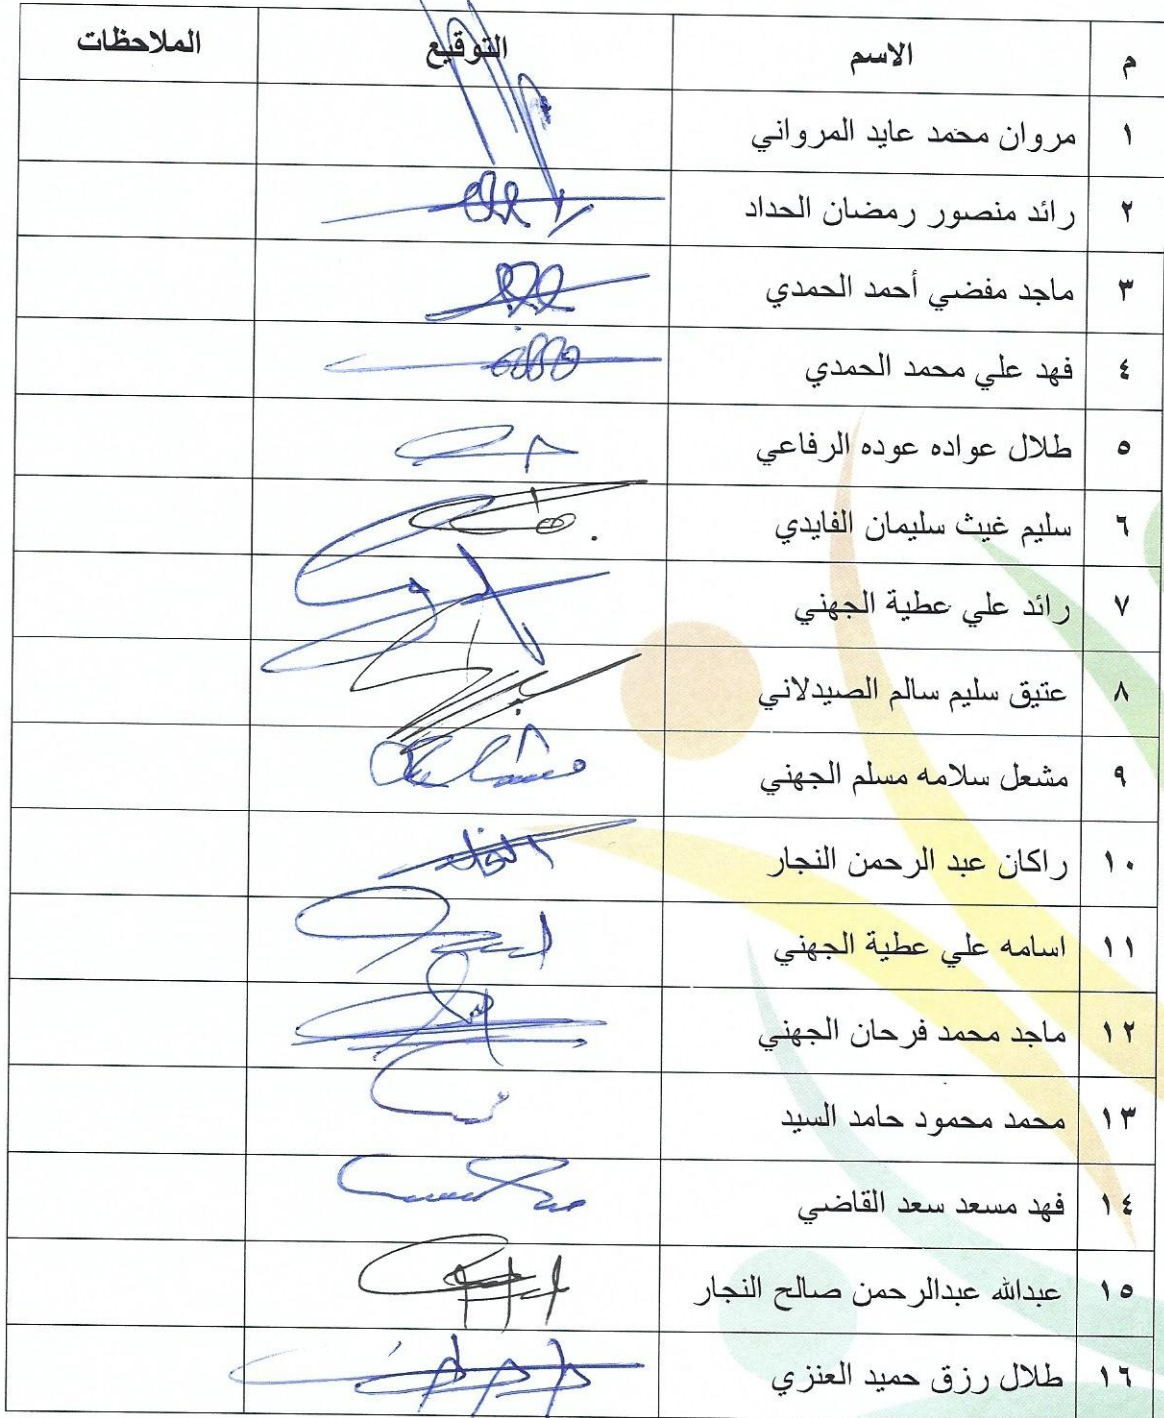 م الاسم التوقيع الملاحظات
١ مروان محمد عايد المرواني
٢ رائد منصور رمضان الحداد
٣ ماجد مفضي أحمد الحمدي
٤ فهد علي محمد الحمدي
٥ طلال عواده عوده الرفاعي
٦ سليم غيث سليمان الفايدي
٧ رائد علي عطية الجهني
٨ عتيق سليم سالم الصيدلاني
٩ مشعل سلامه مسلم الجهني
١٠ راكان عبد الرحمن النجار
١١ اسامه علي عطية الجهني
١٢ ماجد محمد فرحان الجهني
١٣ محمد محمود حامد السيد
١٤ فهد مسعد سعد القاضي
١٥ عبدالله عبدالرحمن صالح النجار
١٦ طلال رزق حميد العنزي